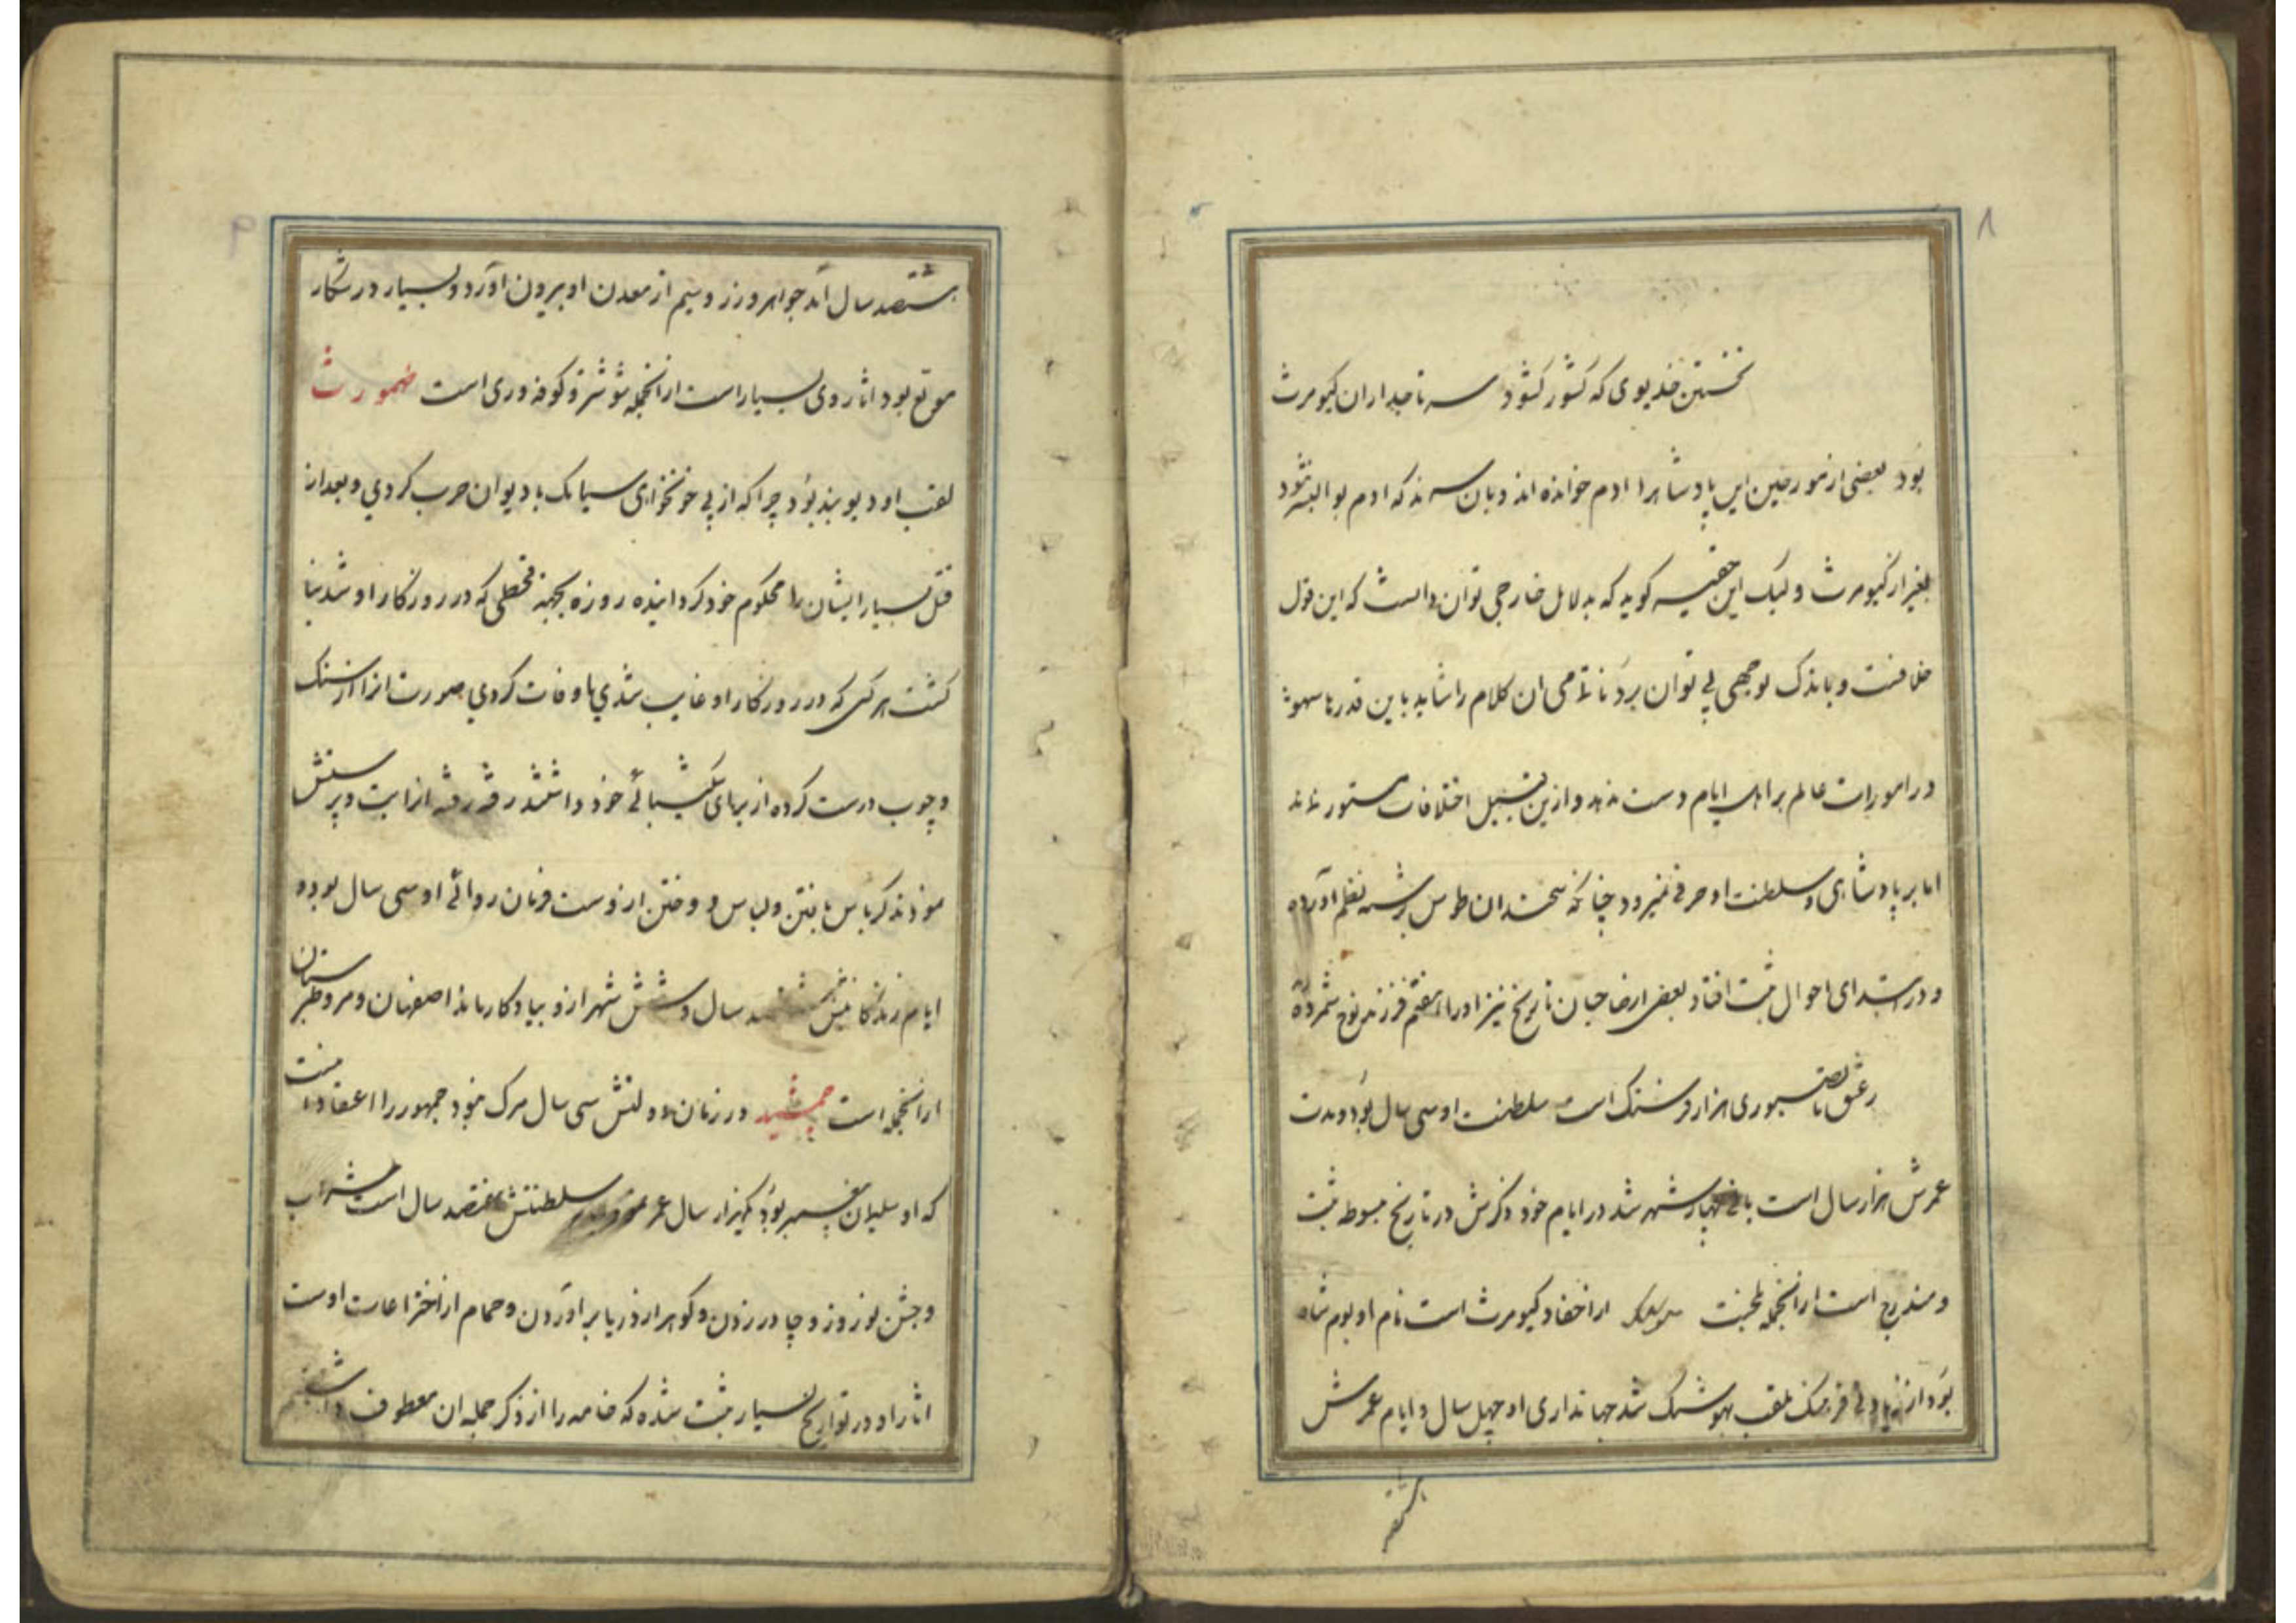 ۸
نخستین خدیوی که کشور کشود سر تاجداران کیومرث
بود بعضی از مورخین این پادشاه را ادم خوانده اند و بان سرند که ادم بوالبشر نبود
بغیر از کیومرث ولیک این حقیر کوید که بدلایل خارجی توان دانست که این قول
خلافست و باندک توجهی پی توان برد تمامی ان کلام را شاید باین قدرها سهو
در امورات عالم بر اهل ایام دست ندهد و ازین قبیل اختلافات مستور نماند
اما بر پادشاهی و سلطنت او حرفی نمیرود چنانکه سخندان طوس برشته نظم آورده
و در ابتدای احوال ثبت افتاد بعضی ارصاحبان تاریخ نیز اورا هفتم فرزند نوح شمرده
سلطنت او سی سال بود و مدت
عمرش هزار سال است بانی چهار شهر شد در ایام خود ذکرش در تاریخ مبسوطه ثبت
و مندرج است ازانجمله بلخست ازاحفاد کیومرث است نام او بوم شاه
بود از زیادتی فرهنک ملقب بهوشنک شد جهانداری او چهل سال و ایام عمرش
هشتصد
۹
هشتصد سال آمد جواهر و زر و سیم از معدن او بیرون آورد و بسیار در شکار
مولع بود اثار وی بسیار است ازانجمله شوشتر و کوفه وری است طهمورث
لقب او دیوبند بود چرا که از پی خونخواهی سیامک با دیوان حرب کردی و بعد از
قتل بسیار ایشان را محکوم خود کردانیده روزه بجهة قحطی که در روزکار او شد بنا
کشت هر کس که در روزکار او غایب شدی یا وفات کردی صورت انرا از سنک
و چوب درست کرده از برای شکیبائی خود داشتند رفته رفته ازا بت و پرستش
نمودند کرباس بافتن و لباس دوختن ازوست فرمان روائی او سی سال بوده
ایام زندکانیش سال و شش شهر ازو بیادکار ماند اصفهان و مرو و طبرستان
ازانجمله است جمشید در زمان دولتش سی سال مرک نبود جمهور را اعتقاد انست
که او سلیمان پیغمبر بود یکهزار سال عمر سلطنتش هفتصد سال است شراب
و جشن نوروز و چادر زدن و کوهر از دریا براوردن و حمام از اختراعات اوست
اثار او در تواریخ بسیار ثبت شده که خامه را از ذکر جمله ان معطوف داشتیم